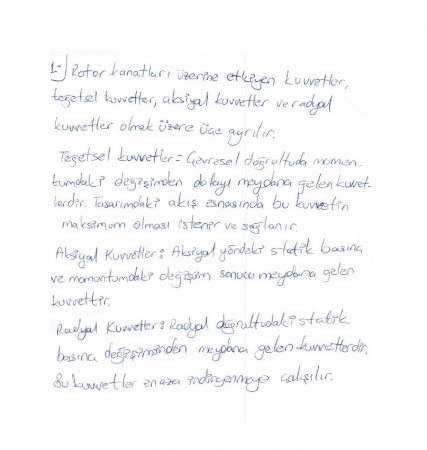 1-) Rotor kanatları üzerine etkiyen kuvvetler,
teğetsel kuvvetler, aksiyal kuvvetler ve radyal
kuvvetler olmak üzere üçe ayrılır.
Teğetsel kuvvetler = Çevresel doğrultuda momen-
tumdaki değişimden dolayı meydana gelen kuvvet-
lerdir. Tasarımdaki akış esnasında bu kuvvetin
maksimum olması istenir ve sağlanır.
Aksiyal Kuvvetler: Aksiyal yöndeki statik basınç
ve momentumdaki değişim sonucu meydana gelen
kuvvettir.
Radyal Kuvvetler: Radyal doğrultudaki statik
basınç değişiminden meydana gelen kuvvetlerdir.
Bu kuvvetler en aza indirgenmeye çalışılır.